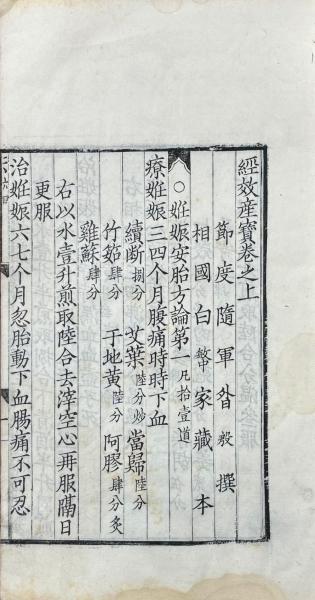 經效產寶卷之上
節度隨軍昝殷撰
相國白敏中家藏本
○妊娠安胎方論第一凡拾壹道
療妊娠三四个月腹痛時時下血
續斷捌分 艾葉陸分炒 當歸陸分
竹筎肆分 干地黃陸分 阿膠肆分炙
雞蘇肆分
右以水壹升煎取陸合去滓空心再服隔日
更服
治妊娠六七个月忽胎動下血腸痛不可忍